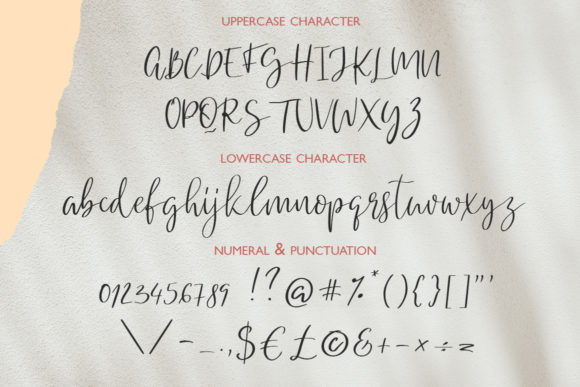 UPPERCASE CHARACTER
ABCDEFGHIJKLMN
OPQRSTUVWXYZ
LOWERCASE CHARACTER
abcdefghijklmnopqrstuvwxyz
NUMERAL & PUNCTUATION
0123456789 !?@#%*(){}[]"'
\/-_.,$€£©&+-×÷=